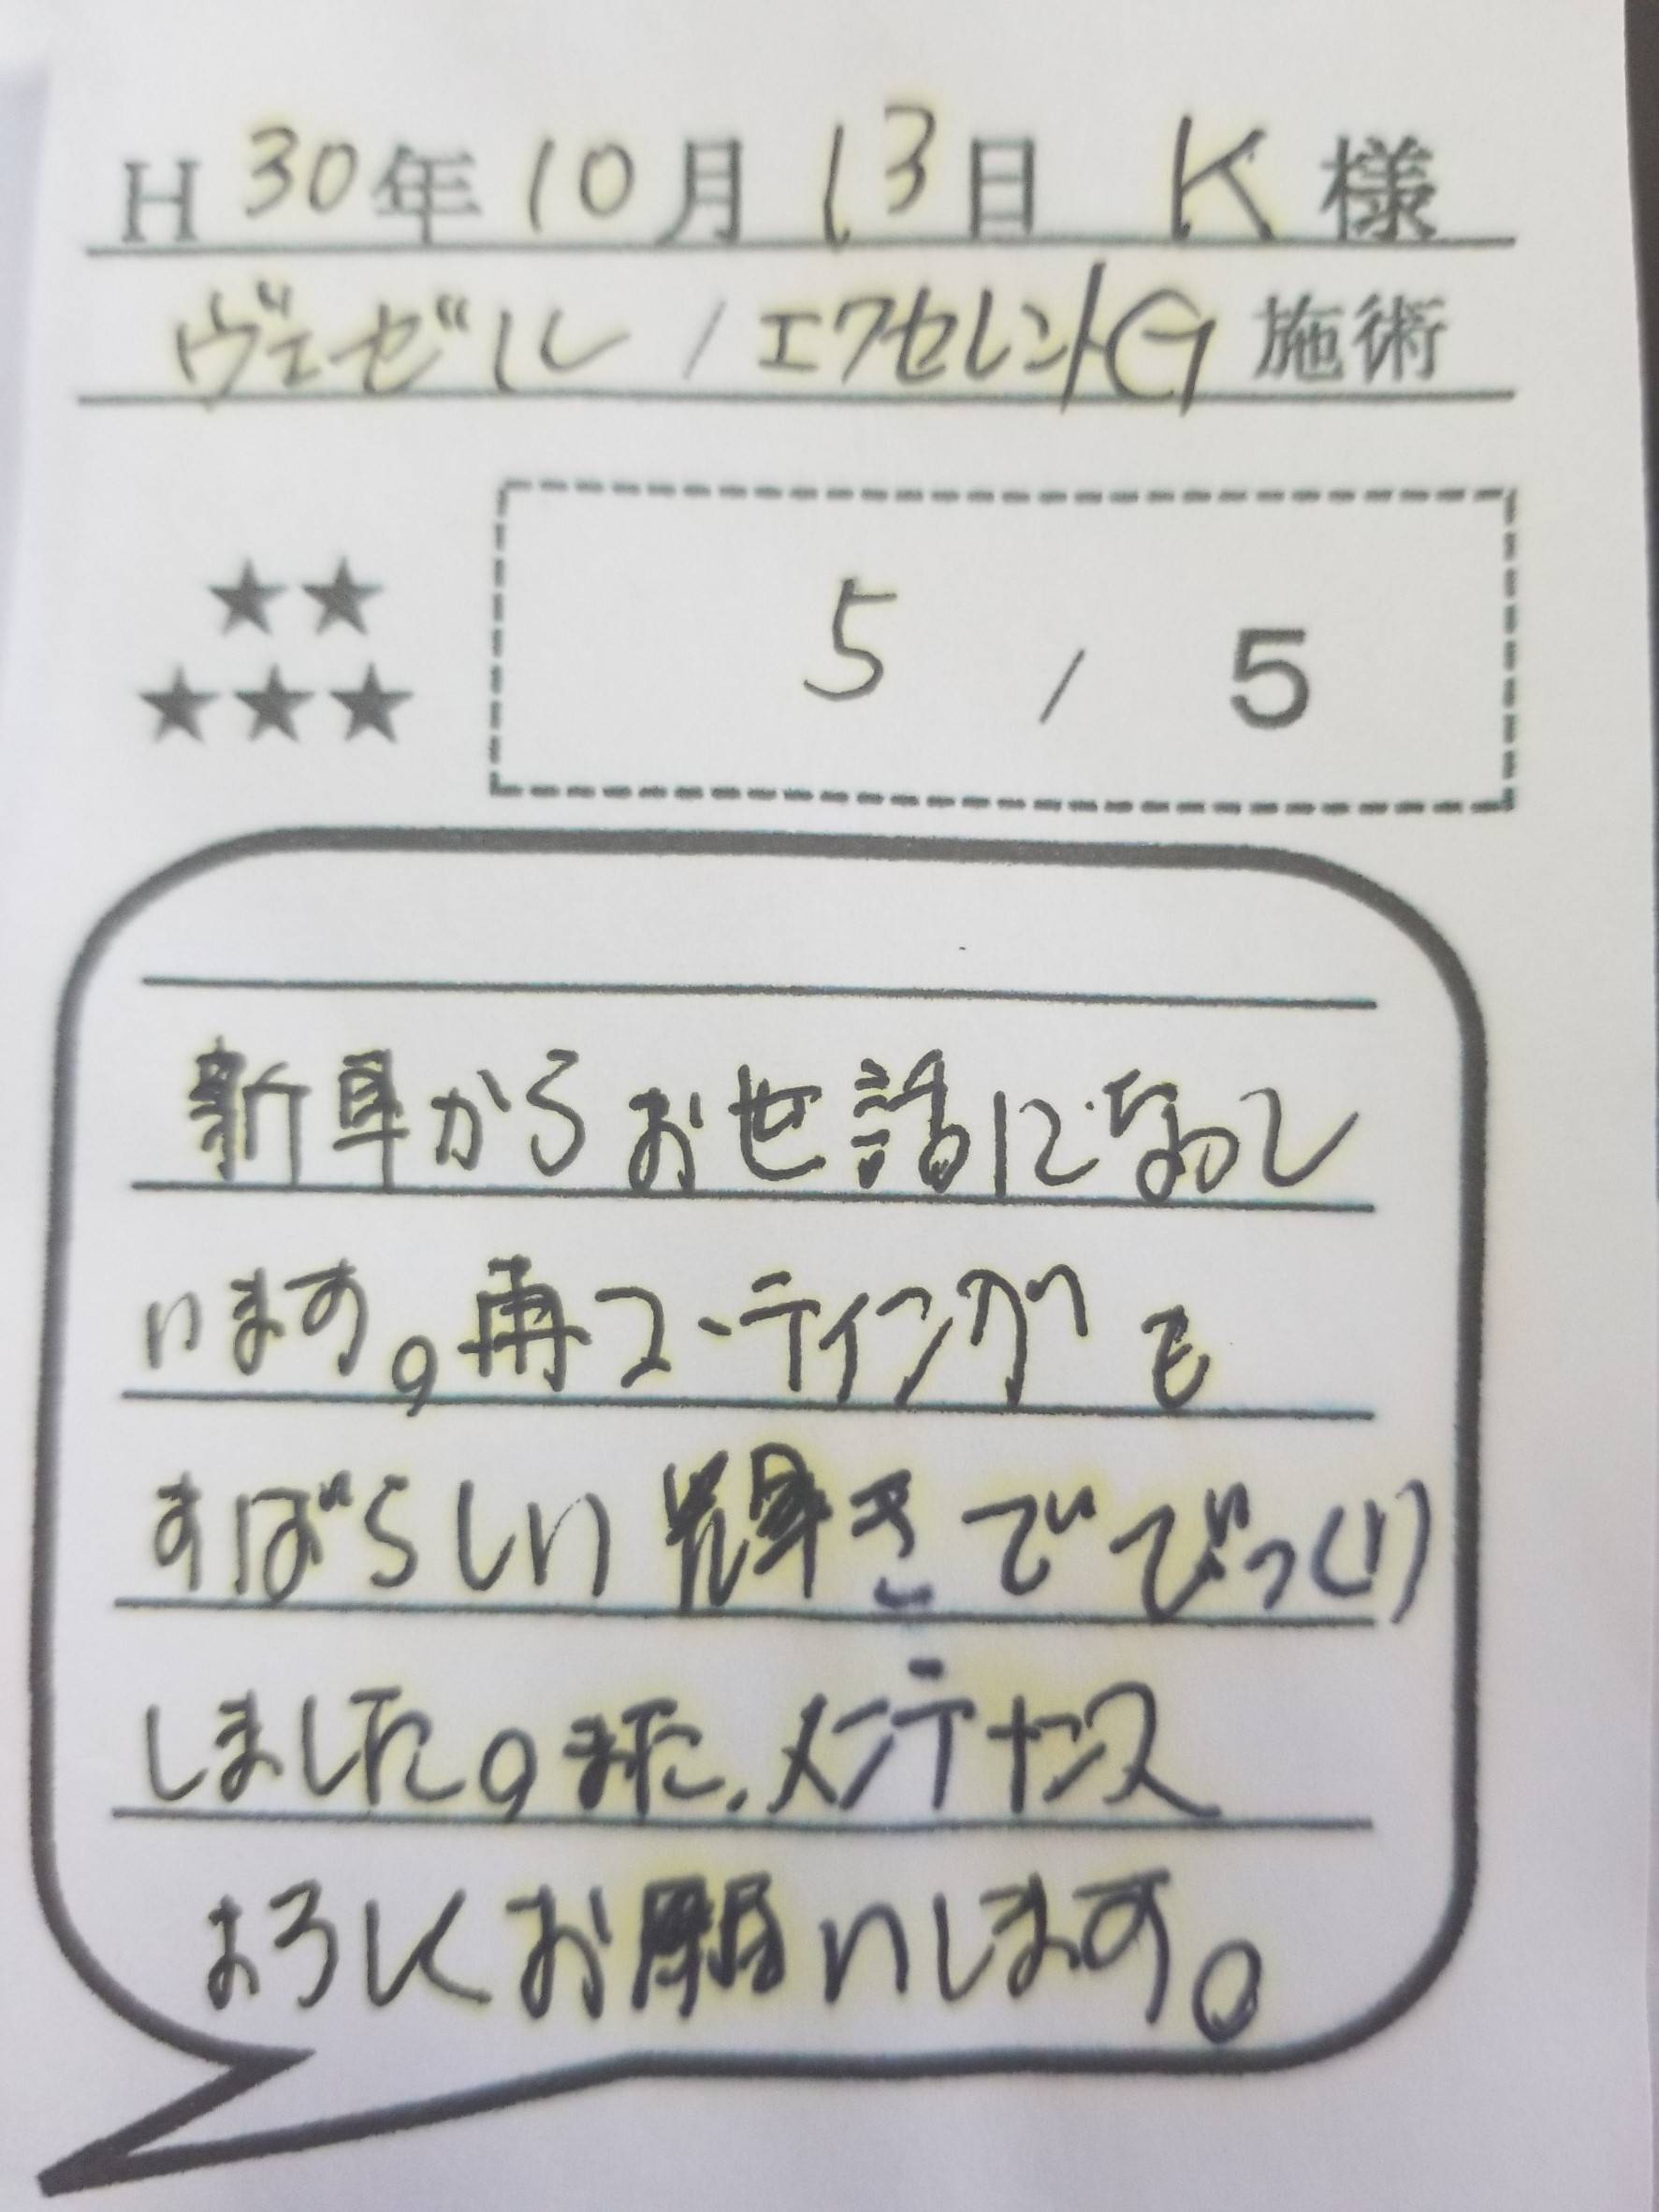 H 30年 10月 13日 K 様
ヴェゼル / エクセレントG 施術
★★
★★★
5 / 5
新車からお世話になって
います。再コーティングも
すばらしい輝きでびっくり
しました。また、メンテナンス
よろしくお願いします。